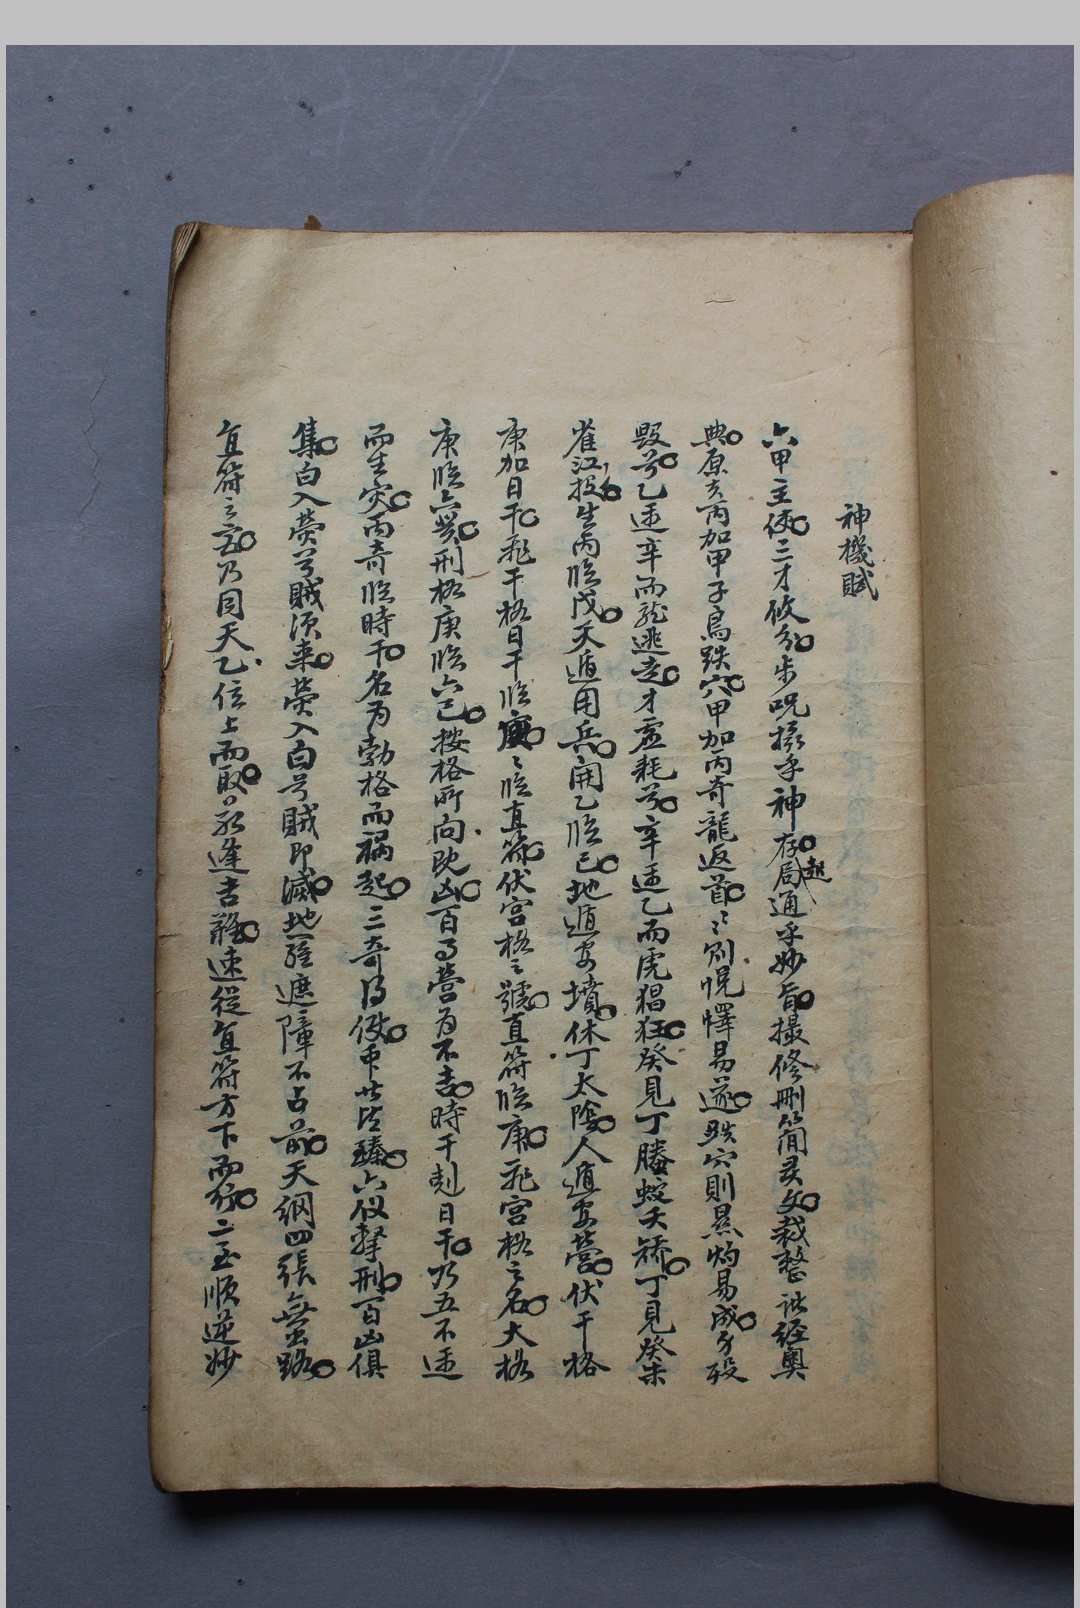 神機賦
六甲主使三才攸分步呪攝乎神存局通乎妙旨撮修刪簡灵文裁整諸經奧
典原夫丙加甲子鳥跌穴甲加丙奇龍返首〻則悅懌易遂跌穴則㬎灼易成身殁
毀兮乙逢辛而龍逃走才虛耗兮辛逢乙而虎猖狂癸見丁螣蛇夭矯丁見癸朱
雀江投生丙臨戊天遁用兵開乙臨己地遁安墳休丁太陰人遁安營伏干格
庚加日干飛干格日干臨庚〻臨直符伏宮格之號直符臨庚飛宮格之名大格
庚臨六癸刑格庚臨六己按格所向既凶百事營為不吉時干剋日干乃五不遇
而生灾丙奇臨時干名為勃格而禍起三奇得使衆善皆臻六仪擊刑百凶俱
集白入熒兮賊須來熒入白兮賊即滅地羅遮障不占前天網四張無路
直符之宮乃同天乙位上而取若逢吉難速從直符方下而行二至順逆妙